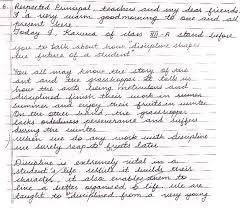 6. Respected Principal, teachers and my dear friends,
a very warm good morning to one and all
present here.
Today I, Karuna of class XII-A stand before
you to talk about how discipline shapes
the future of a student.
You all may know the story of the
ant and the grasshopper. It tells us
how the ants being meticulous and
disciplined finish their work in summer
and enjoy their fruits in winter.
On the other hand, the grasshopper
lacks and suffers
during the winter.
When we do any work with discipline
we surely reap it fruits later.
Discipline is extremely vital in a
student's life. It builds their
character, it also enables them to
live a better organised life. We are
taught to "disciplined" from a very young